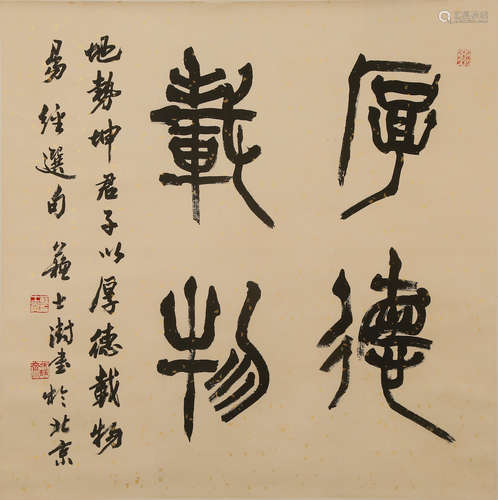 厚德
載物
地勢坤君子以厚德載物
易經選句 蘇士澍書於北京